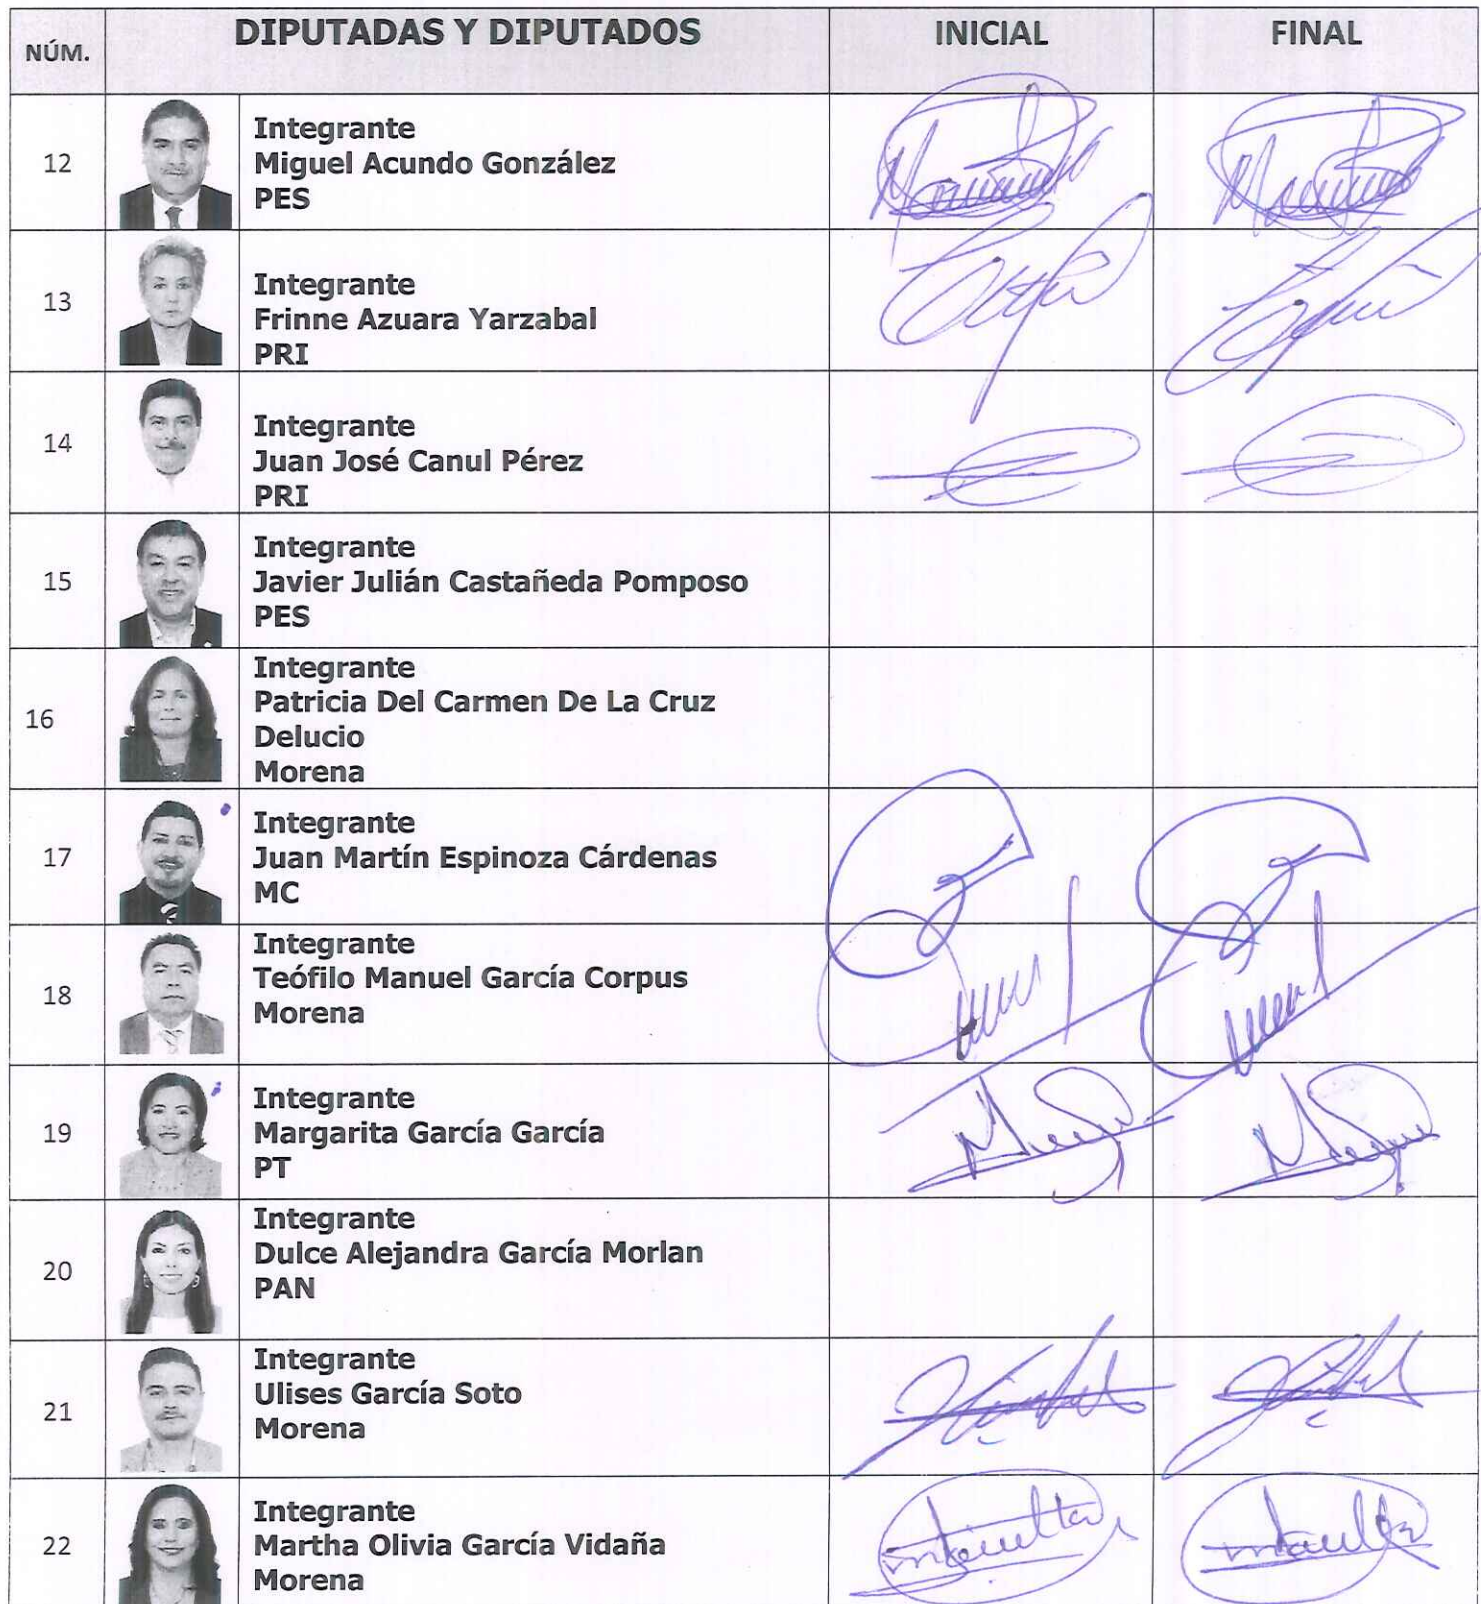 NÚM.
DIPUTADAS Y DIPUTADOS
INICIAL
FINAL
12
Integrante
Miguel Acundo González
PES
13
Integrante
Frinne Azuara Yarzabal
PRI
14
Integrante
Juan José Canul Pérez
PRI
15
Integrante
Javier Julián Castañeda Pomposo
PES
16
Integrante
Patricia Del Carmen De La Cruz
Delucio
Morena
17
Integrante
Juan Martín Espinoza Cárdenas
MC
18
Integrante
Teófilo Manuel García Corpus
Morena
19
Integrante
Margarita García García
PT
20
Integrante
Dulce Alejandra García Morlan
PAN
21
Integrante
Ulises García Soto
Morena
22
Integrante
Martha Olivia García Vidaña
Morena